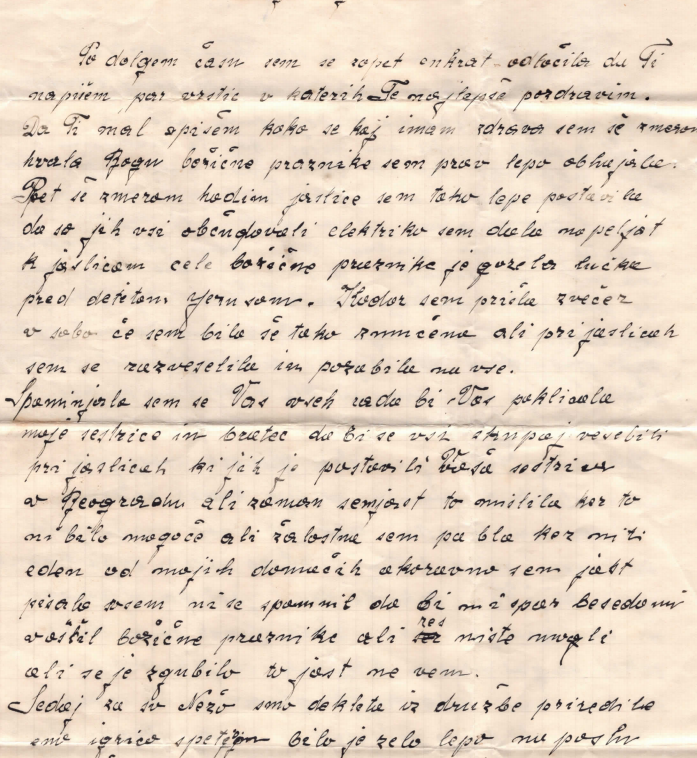 Po dolgem času sem se zopet enkrat odločila da Ti
napišem par vrstic v katerih Te najlepše pozdravim.
Da Ti mal opišem kako se kaj imam zdrava sem še zmerom
hvala Bogu božične praznike sem prav lepo obhajala.
Pet še zmerom hodim jaslice sem tako lepe postavila
da so jih vsi občudovali elektriko sem dala napeljat
k jaslicam cele božične praznike je gorela lučka
pred detetom Jezusom. Kadar sem prišla zvečer
v sobo če sem bila še tako zmučena ali pri jaslicah
sem se razveselila in pozabila na vse.
Spominjala sem se Vas vseh rada bi Vas poklicala
moje sestrice in bratec da bi se vsi skupaj veselili
pri jaslicah ki jih je postavili Vaša sestrica
v Beogradu ali zaman sem jast to mislila ker to
ni bilo mogoče ali žalostna sem pa bla ker niti
eden od mojih domačih akoravno sem jast
pisala vsem ni se spomnil da bi mi spar besedami
voščil božične praznike ali res niste mogli
ali se je zgubilo to jast ne vem.
Sedaj za sv Nežo smo dekleta iz družbe priredile
eno igrico bilo je zelo lepo na postu